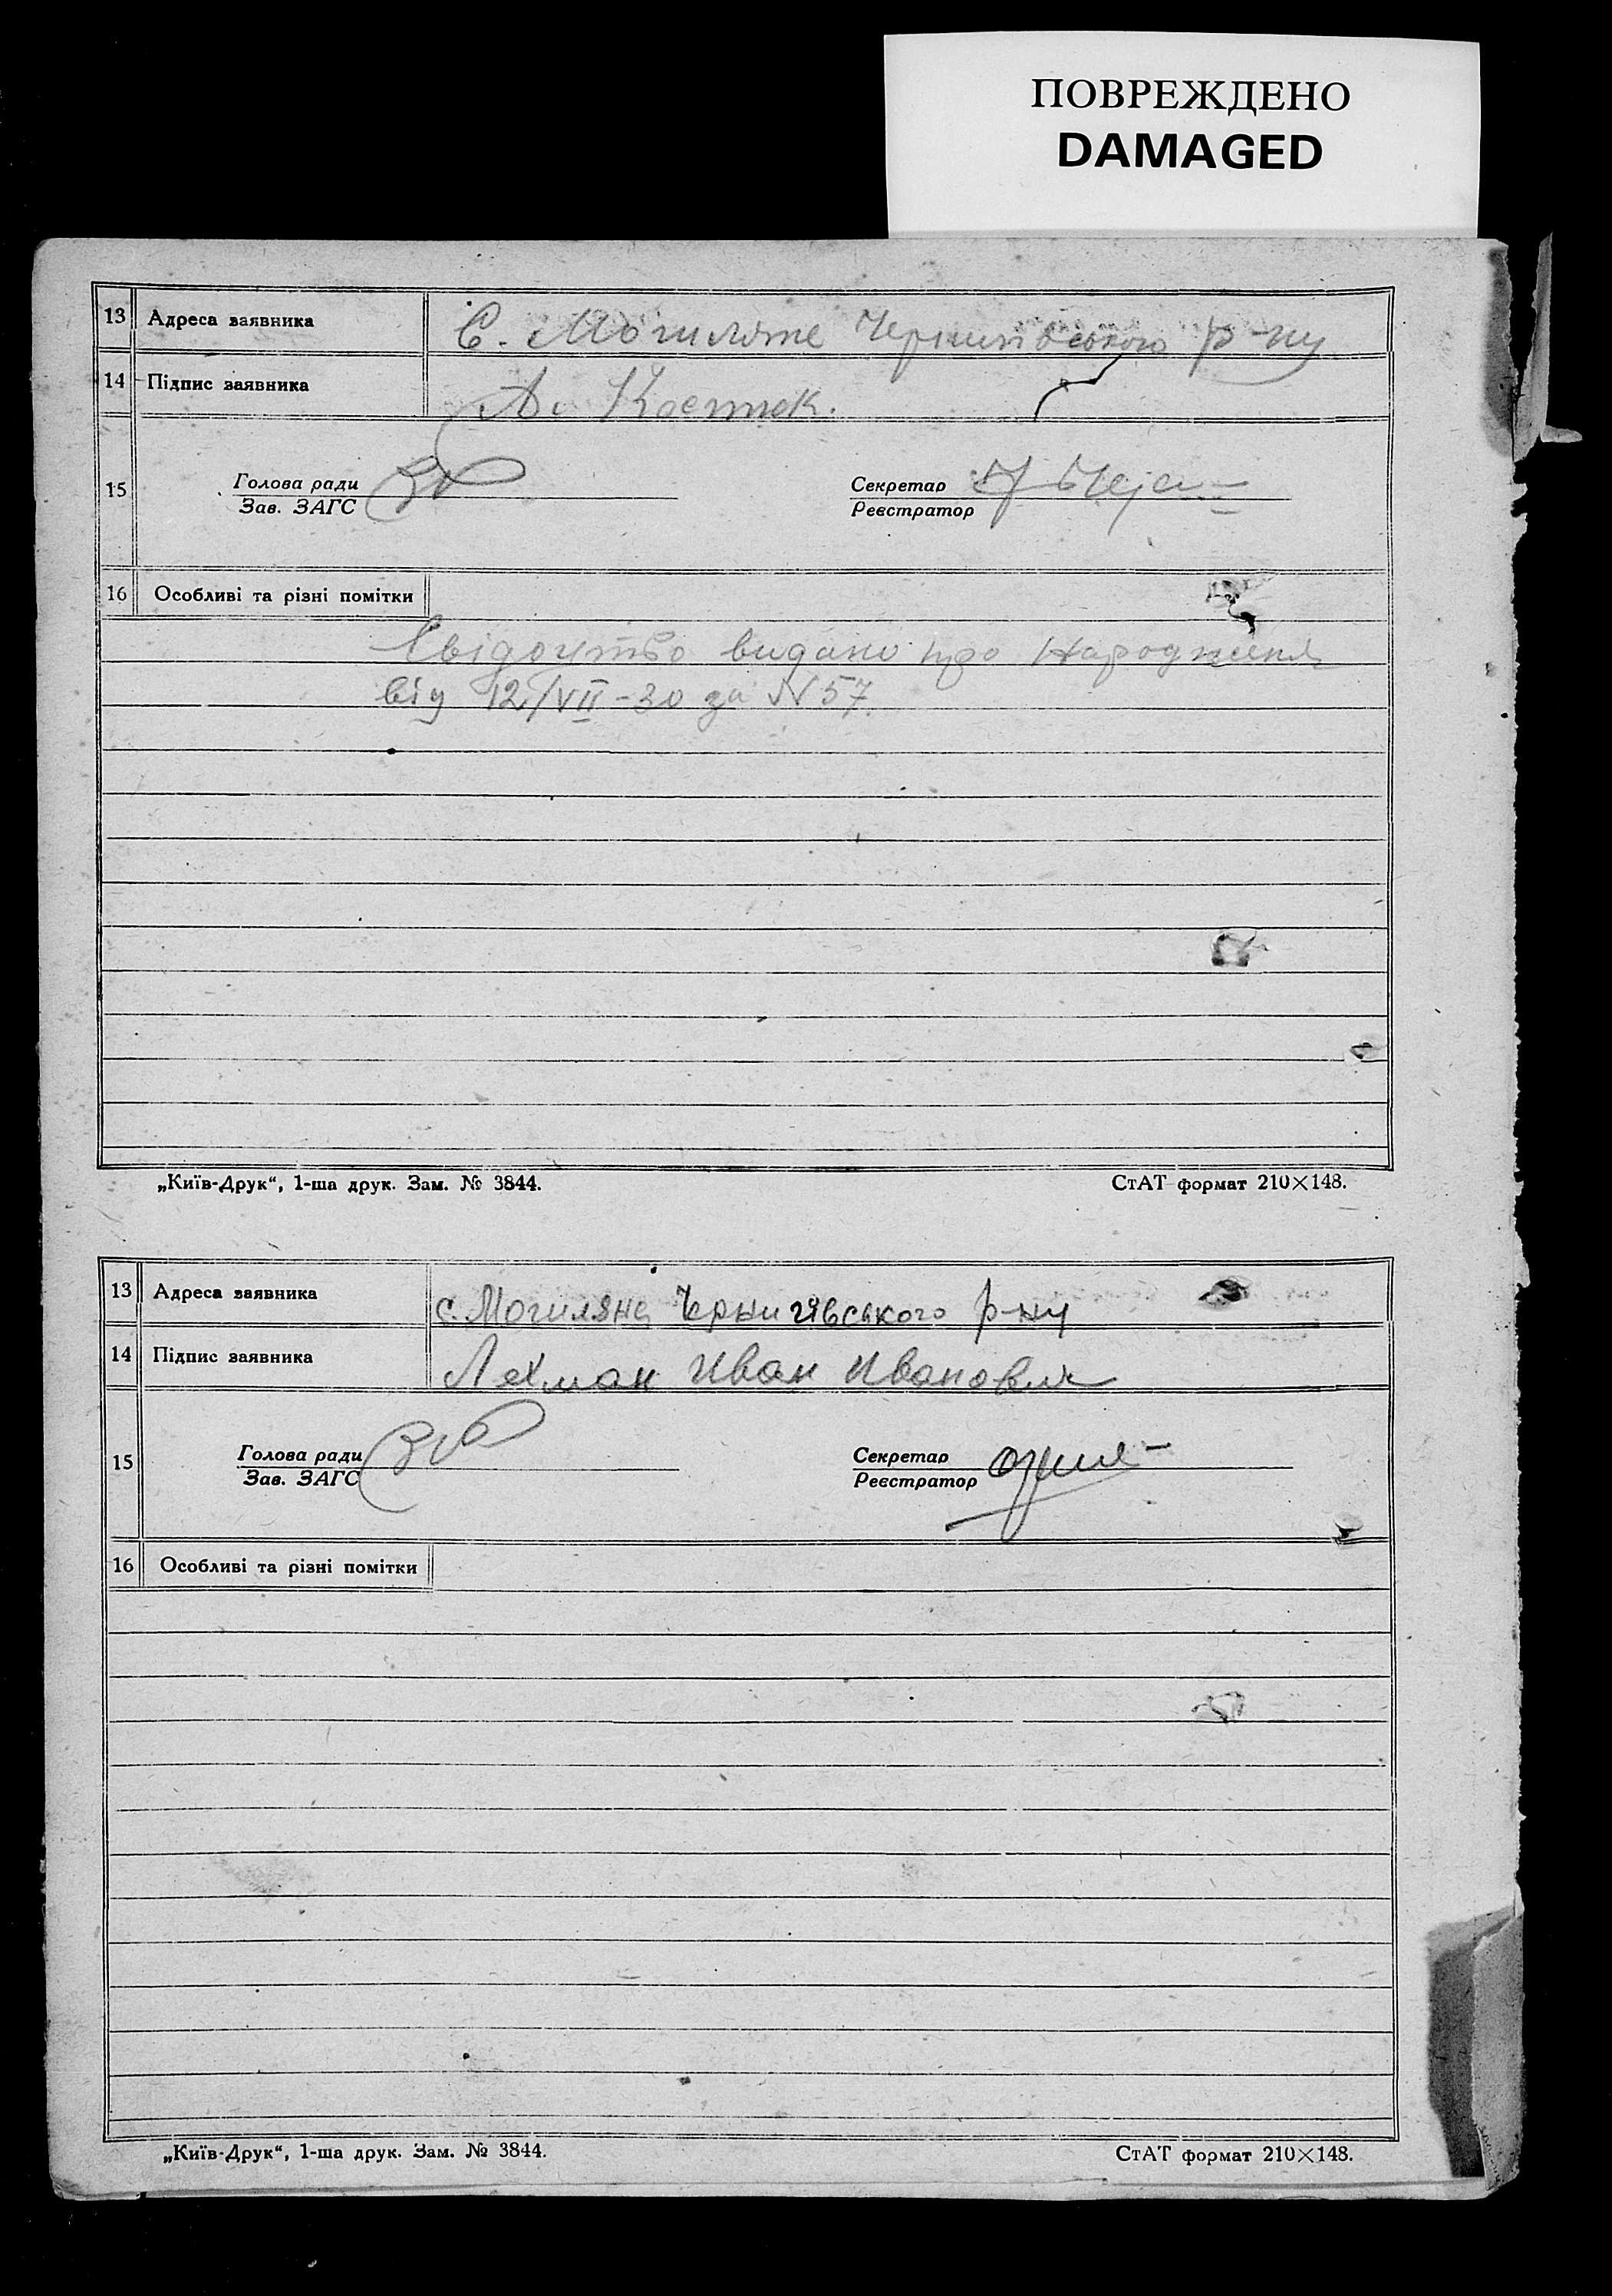 ПОВРЕЖДЕНО
DAMAGED
13 Адреса заявника С. Могиляне Чернигівського р-ну
14 Підпис заявника А. Костюк.
15 Голова ради Секретар
Зав. ЗАГС Реєстратор
16 Особливі та різні помітки
Свідоцтво видано про Народження
від 12/VII-30 за N 57.
„Київ-Друк“, 1-ша друк. Зам. № 3844. СтАТ формат 210×148.
13 Адреса заявника с. Могиляне Чернигівського р-ну
14 Підпис заявника Лехман Иван Иванович
15 Голова ради Секретар
Зав. ЗАГС Реєстратор
16 Особливі та різні помітки
„Київ-Друк“, 1-ша друк. Зам. № 3844. СтАТ формат 210×148.